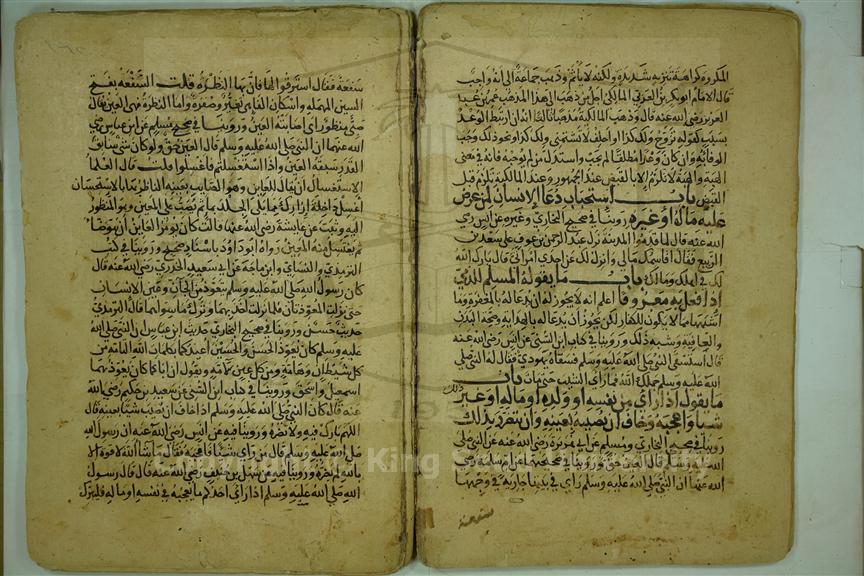 المكروه كراهة تنزيه شديدة ولكنه لا يأثم وذهب جماعة الى انه واجب
قال الامام ابو بكر بن العربي المالكي اجل من ذهب الى هذا المذهب عمر بن عبد
العزيز رضي الله عنه قال وذهب المالكية مذهبا ثالثا انه ان ارتبط الوعد
بسبب كقوله تزوج ولك كذا او احلف لا تشتمني ولك كذا او نحو ذلك وجب
الوفا به وان كان وعدا مطلقا لم يجب واستدل من لم يوجبه فانه في معنى
الهبة والهبة لا تلزم الا بالقبض عند الجمهور وعند المالكية تلزم قبل
القبض باب استحباب دعا الانسان لمن عرض
عليه ماله او غيره روينا في صحيح البخاري وغيره عن انس رضي
الله عنه قال لما قدموا المدينة نزل عبد الرحمن بن عوف على سعد بن
الربيع فقال اقاسمك مالي وانزل لك عن احدى امراتي قال بارك الله
لك في اهلك ومالك باب ما يقوله المسلم للذمي
اذا فعل به معروفا اعلم انه لا يجوز له ان يدعا له بالمغفرة وما
اشبهها مما لا يكون للكفار لكن يجوز ان يدعا له بالهداية وصحة البدن
والعافية وشبه ذلك وروينا في كتاب ابن السني عن انس رضي الله عنه
قال استسقى النبي صلى الله عليه وسلم فسقاه يهودي فقال له النبي صلى
الله عليه وسلم جملك الله فما راى الشيب حتى مات باب
ما يقول اذا راى من نفسه او ولده او ماله او غير ذلك
شيا واعجبه وخاف ان يصيبه بعينه وان يتضرر بذلك
روينا في صحيح البخاري ومسلم عن ابي هريرة رضي الله عنه عن النبي صلى
الله عليه وسلم قال العين حق وروينا في صحيحهما عن ام سلمة رضي
الله عنها ان النبي صلى الله عليه وسلم راى في بيتها جارية في وجهها
سفعة
سفعة فقال استرقوا لها فان بها النظرة قلت السفعة بفتح
السين المهملة واسكان الفا هي تغير وصفرة واما النظرة فهي العين يقال
صبي منظور اي اصابته العين وروينا في صحيح مسلم عن ابن عباس رضي
الله عنهما ان النبي صلى الله عليه وسلم قال العين حق ولو كان شي سابق
القدر سبقته العين واذا استغسلتم فاغسلوا قلت قال العلما
الاستغسال ان يقال للعاين وهو الصايب بعينه الناظر بها بالاستحسان
اغسل داخلة ازارك مما يلي الجلد بما ثم يصب على المعين وهو المنظور
اليه وثبت عن عايشة رضي الله عنها قالت كان يومر العاين ان يتوضا
ثم يغتسل منه المعين رواه ابو داود باسناد صحيح وروينا في كتب
الترمذي والنساي وابن ماجة عن ابي سعيد الخدري رضي الله عنه قال
كان رسول الله صلى الله عليه وسلم يتعوذ من الجان وعين الانسان
حتى نزلت المعوذتان فلما نزلت اخذ بهما وترك ما سواهما قال الترمذي
حديث حسن وروينا في صحيح البخاري حديث ابن عباس ان النبي صلى الله
عليه وسلم كان يعوذ الحسن والحسين اعيذكما بكلمات الله التامة من
كل شيطان وهامة ومن كل عين لامة ويقول ان اباكما كان يعوذ بهما
اسمعيل واسحق وروينا في كتاب ابن السني عن سعيد بن حكيم رضي الله
عنه قال كان النبي صلى الله عليه وسلم اذا خاف ان يصيب شيا بعينه قال
اللهم بارك فيه ولا تضره وروينا فيه عن انس رضي الله عنه ان رسول الله
صلى الله عليه وسلم قال من راى شيا فاعجبه فقال ما شا الله لا قوة الا
بالله لم يضره وروينا فيه عن سهل بن حنيف رضي الله عنه قال قال رسول
الله صلى الله عليه وسلم اذا راى احدكم ما يعجبه في نفسه او ماله فليبرك